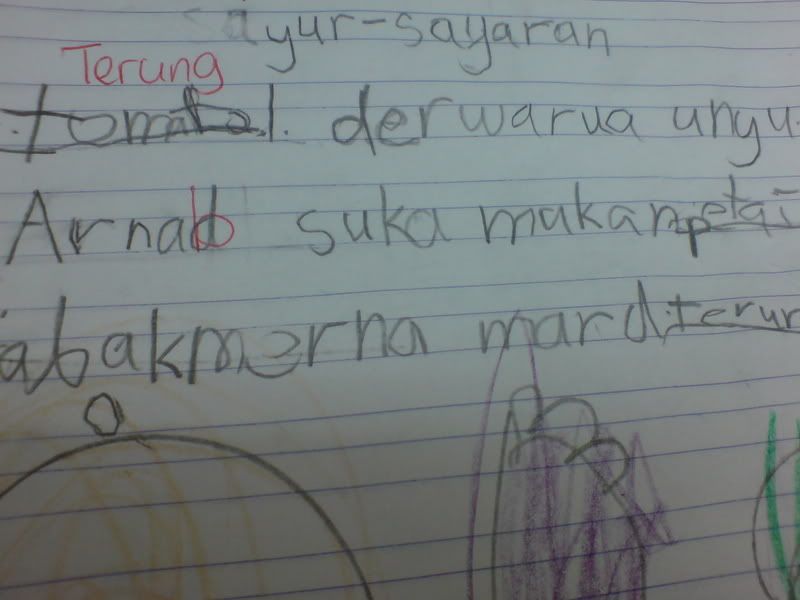 ayur-sayaran
Terung
tomtol. derwarua ungu.
Arnab suka makan petai
abakmerna mard terur